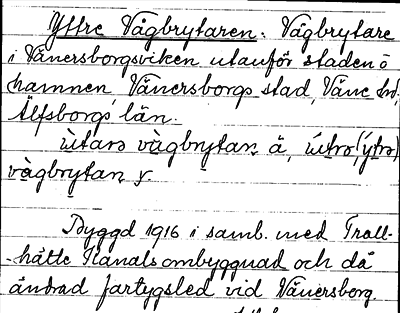 Yttre Vågbrytaren: Vågbrytare
i Vänersborgsviken utanför staden o
hamnen Vänersborgs stad, Väne hd,
Älfsborgs län.
ùtarə vàgbrytan ä, útrə (ýtrə)
vàgbrytan y.
Byggd 1916 i samb. med Troll-
-hätte Kanals ombyggnad och då
ändrad fartygsled vid Vänersborg.